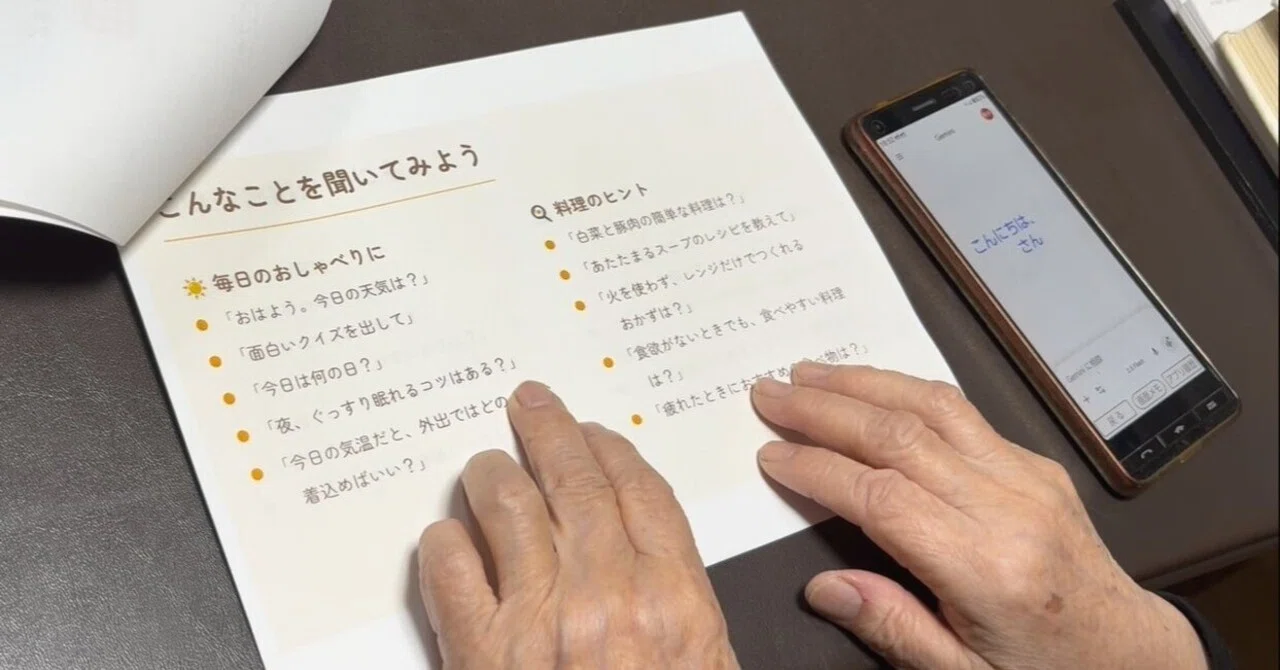 こんなことを聞いてみよう
毎日のおしゃべりに
「おはよう。今日の天気は？」
「面白いクイズを出して」
「今日は何の日？」
「夜、ぐっすり眠れるコツはある？」
「今日の気温だと、外出ではどの
着込めばいい？」
料理のヒント
「白菜と豚肉の簡単な料理は？」
「あたたまるスープのレシピを教えて」
「火を使わず、レンジだけでつくれる
おかずは？」
「食欲がないときでも、食べやすい料理
は？」
「疲れたときにおすすめ
べ物は？」
Gemini
こんにちは、
さん
Gemini に相談
戻る
画面メモ
アプリ履歴